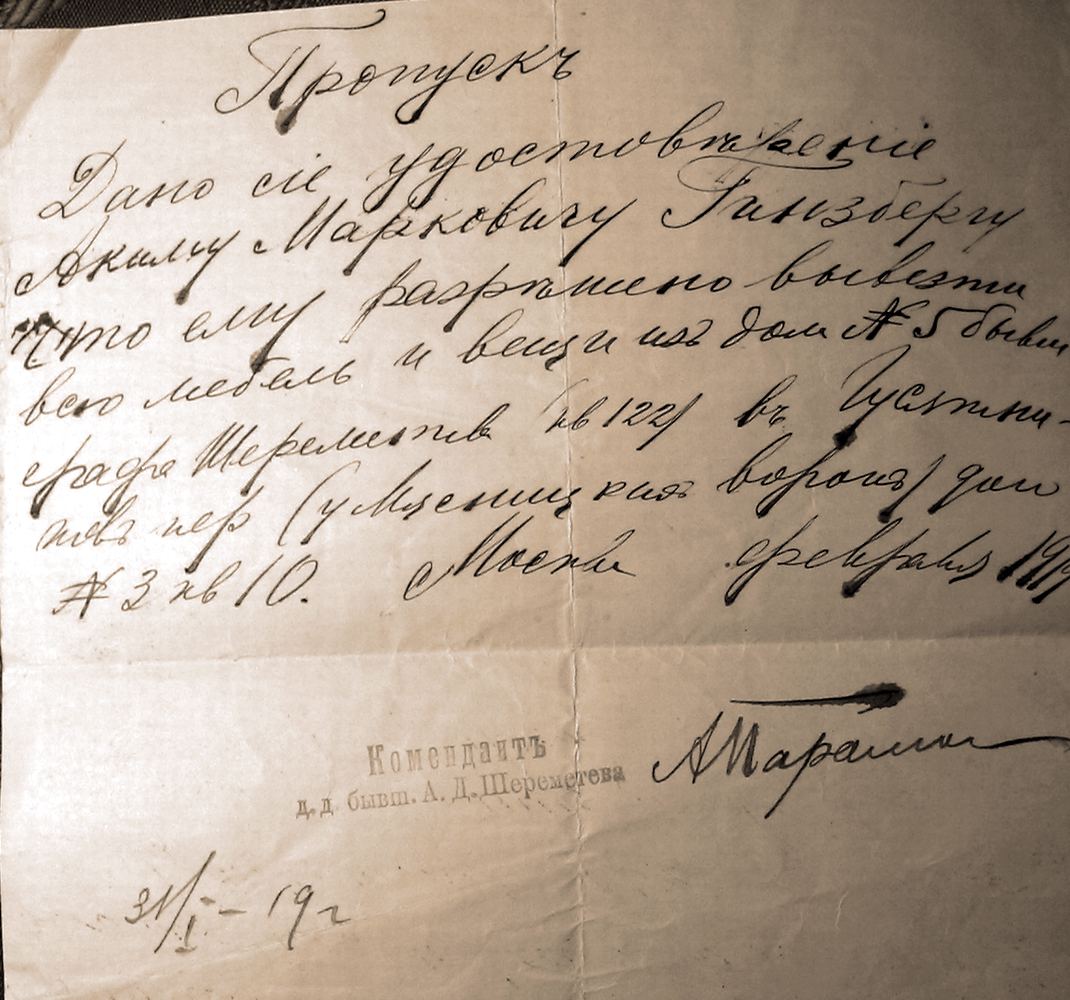 Пропускъ
Дано сіе удостовѣреніе
Акиму Марковичу Гинзбергу
что ему разрѣшено вывезти
всю мебель и вещи изъ дома № 5 бывш
графа Шереметева кв 122) въ Гусятни-
ковъ пер (у Мясницкихъ воротъ) дом
№ 3 кв 10. Москва февраля 1919
Комендантъ
д. д бывш. А. Д. Шереметева
31/I - 19 г